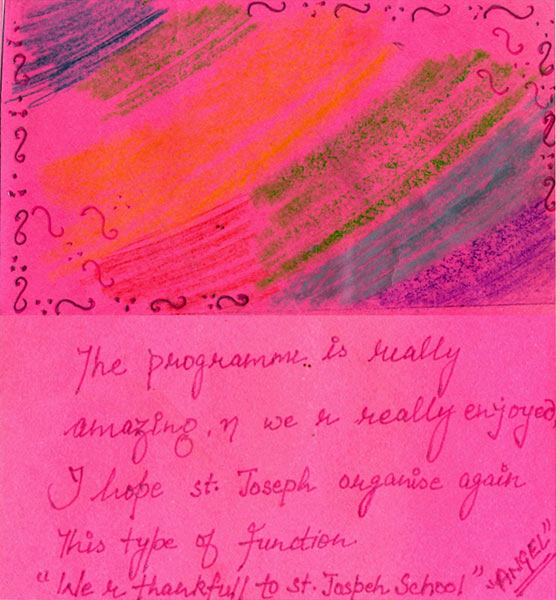 The programme is really
amazing, n we r really enjoyed,
I hope st. Joseph organise again
This type of function.
"We r thankfull to st. Jospeh School"
"ANGEL"